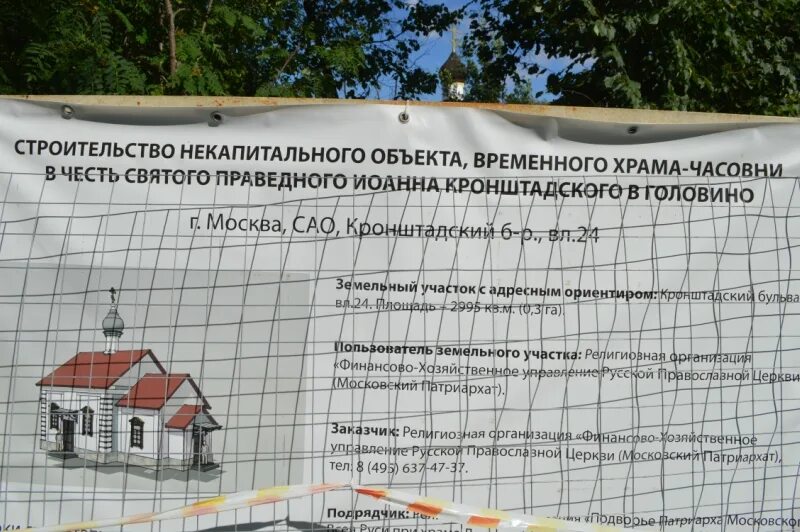 СТРОИТЕЛЬСТВО НЕКАПИТАЛЬНОГО ОБЪЕКТА, ВРЕМЕННОГО ХРАМА-ЧАСОВНИ
В ЧЕСТЬ СВЯТОГО ПРАВЕДНОГО ИОАННА КРОНШТАДСКОГО В ГОЛОВИНО
г. Москва, САО, Кронштадский б-р., вл.24
Земельный участок с адресным ориентиром: Кронштадский бульва
вл.24. Площадь – 2995 кв.м. (0,3 га).
Пользователь земельного участка: Религиозная организация
«Финансово-Хозяйственное управление Русской Православной Церкви
(Московский Патриархат).
Заказчик: Религиозная организация «Финансово-Хозяйственное
управление Русской Православной Церкви (Московский Патриархат),
тел: 8 (495) 637-47-37.
Подрядчик: «Подворье Патриарха Московско
Всея Руси при